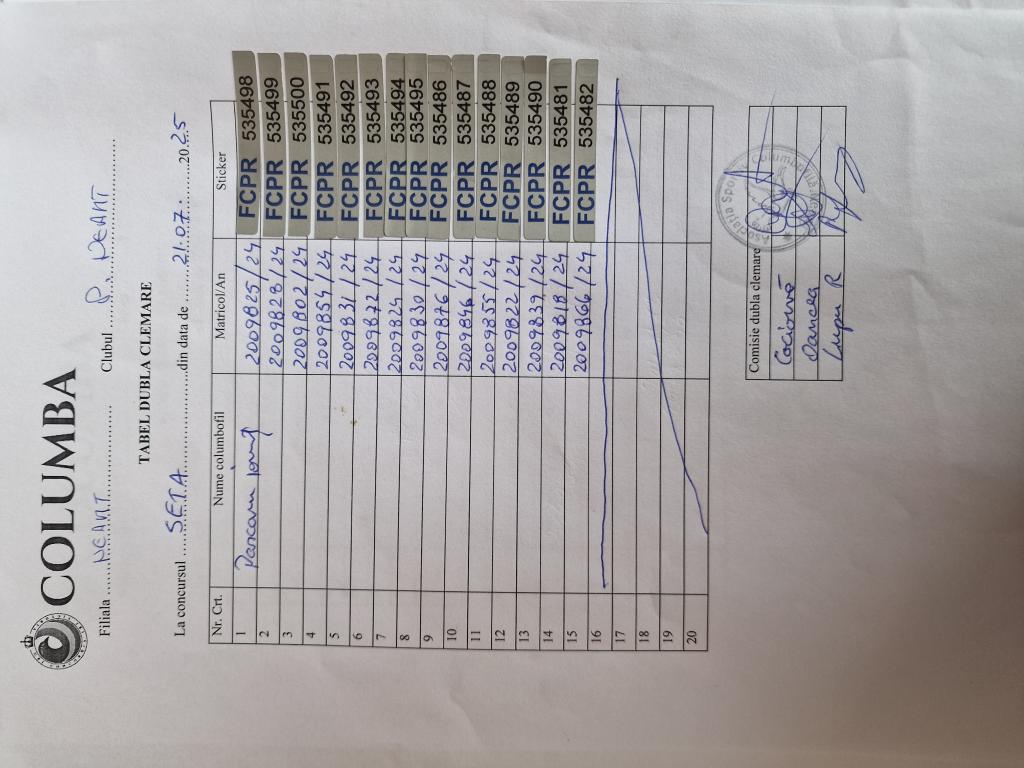 COLUMBA
Filiala ......NEAMT............ Clubul .....P. NEAMT............
TABEL DUBLA CLEMARE
La concursul ....SETA..............din data de .......21.07.........2025
Nr. Crt. Nume columbofil Matricol/An Sticker
1 2009825/24 FCPR 535498
2 2009828/24 FCPR 535499
3 2009802/24 FCPR 535500
4 2009834/24 FCPR 535491
5 2009831/24 FCPR 535492
6 2009872/24 FCPR 535493
7 2009824/24 FCPR 535494
8 2009830/24 FCPR 535495
9 2009876/24 FCPR 535486
10 2009846/24 FCPR 535487
11 2009855/24 FCPR 535488
12 2009822/24 FCPR 535489
13 2009839/24 FCPR 535490
14 2009818/24 FCPR 535481
15 2009866/24 FCPR 535482
16
17
18
19
20
Comisie dubla clemare
Oancea
Lupu R